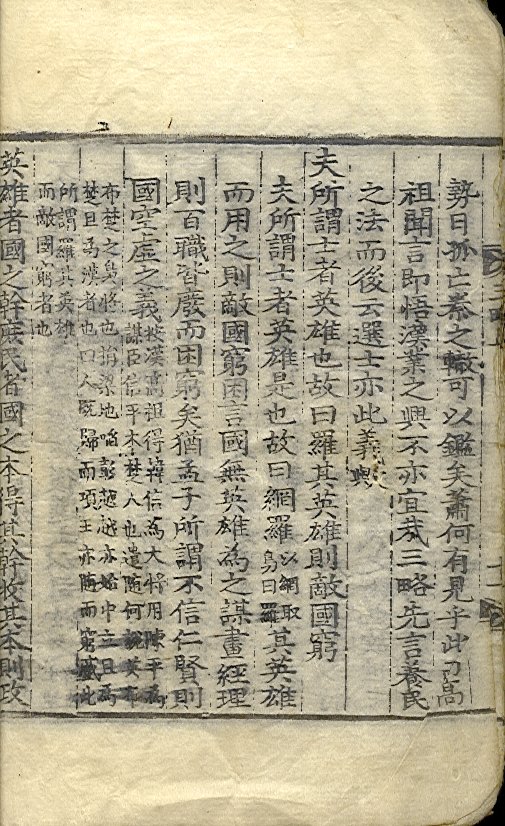 勢日孤亡秦之轍可以鑑矣蕭何有見乎此乃高
祖聞言即悟漢業之興不亦宜哉三略先言養民
之法而後云選士亦此義歟
夫所謂士者英雄也故曰羅其英雄則敵國窮
夫所謂士者英雄是也故曰網羅以網取鳥曰羅其英雄
而用之則敵國窮困言國無英雄為之謀畫經理
則百職皆廢而困窮矣猶孟子所謂不信仁賢則
國空虛之義按漢高祖得韓信為大將用陳平為
謀臣信平本楚人也遣隨何說英布
布楚之梟將也捐梁地啗彭越越亦
楚且為漢者也人既歸而項王亦隨而窮蹙此
所謂羅其英雄
而敵國窮者也
英雄者國之幹庶民者國之本得其幹收其本則政